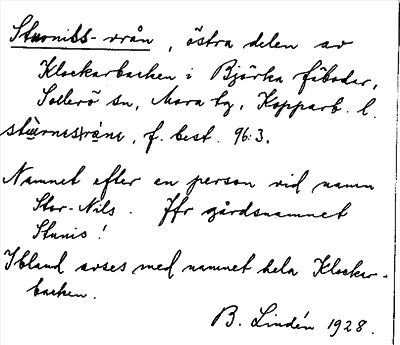 Stornils-vrån, östra delen av
Klockarbacken i Björka fäbodar,
Sollerö sn, Mora tg, Kopparb. l.
f. best. 96:3.
Namnet efter en person vid namn
Stor-Nils. Jfr gårdsnamnet
Stunis!
Ibland avses med namnet hela Klockar-
backen.
B. Lindén 1928.